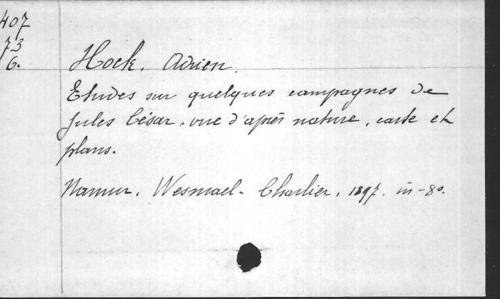 407
73
6.
Hock, Adrien.
Etudes sur quelques campagnes de
Jules César, vue d'après nature, carte et
plans.
Namur, Wesmael-Charlier, 1897. in-8o.